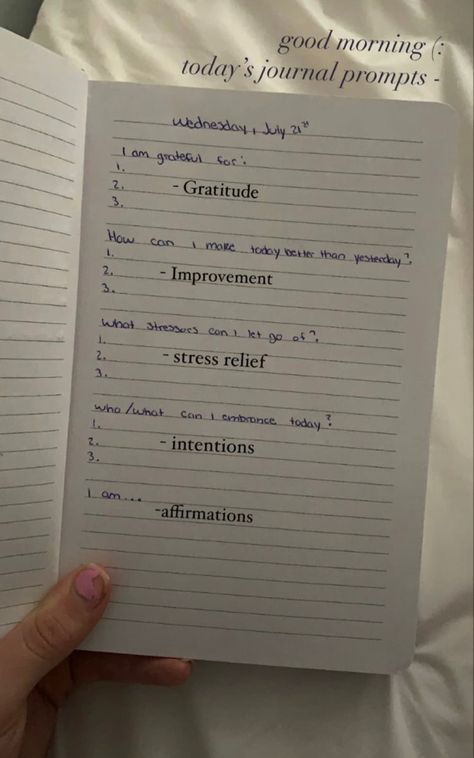 good morning (:
today's journal prompts -
Wednesday, July 21st
I am grateful for:
1.
2.
- Gratitude
3.
How can I make today better than yesterday?
1.
2.
- Improvement
3.
What stressors can I let go of?
1.
2.
- stress relief
3.
who/what can I embrance today?
1.
2.
- intentions
3.
I am...
-affirmations